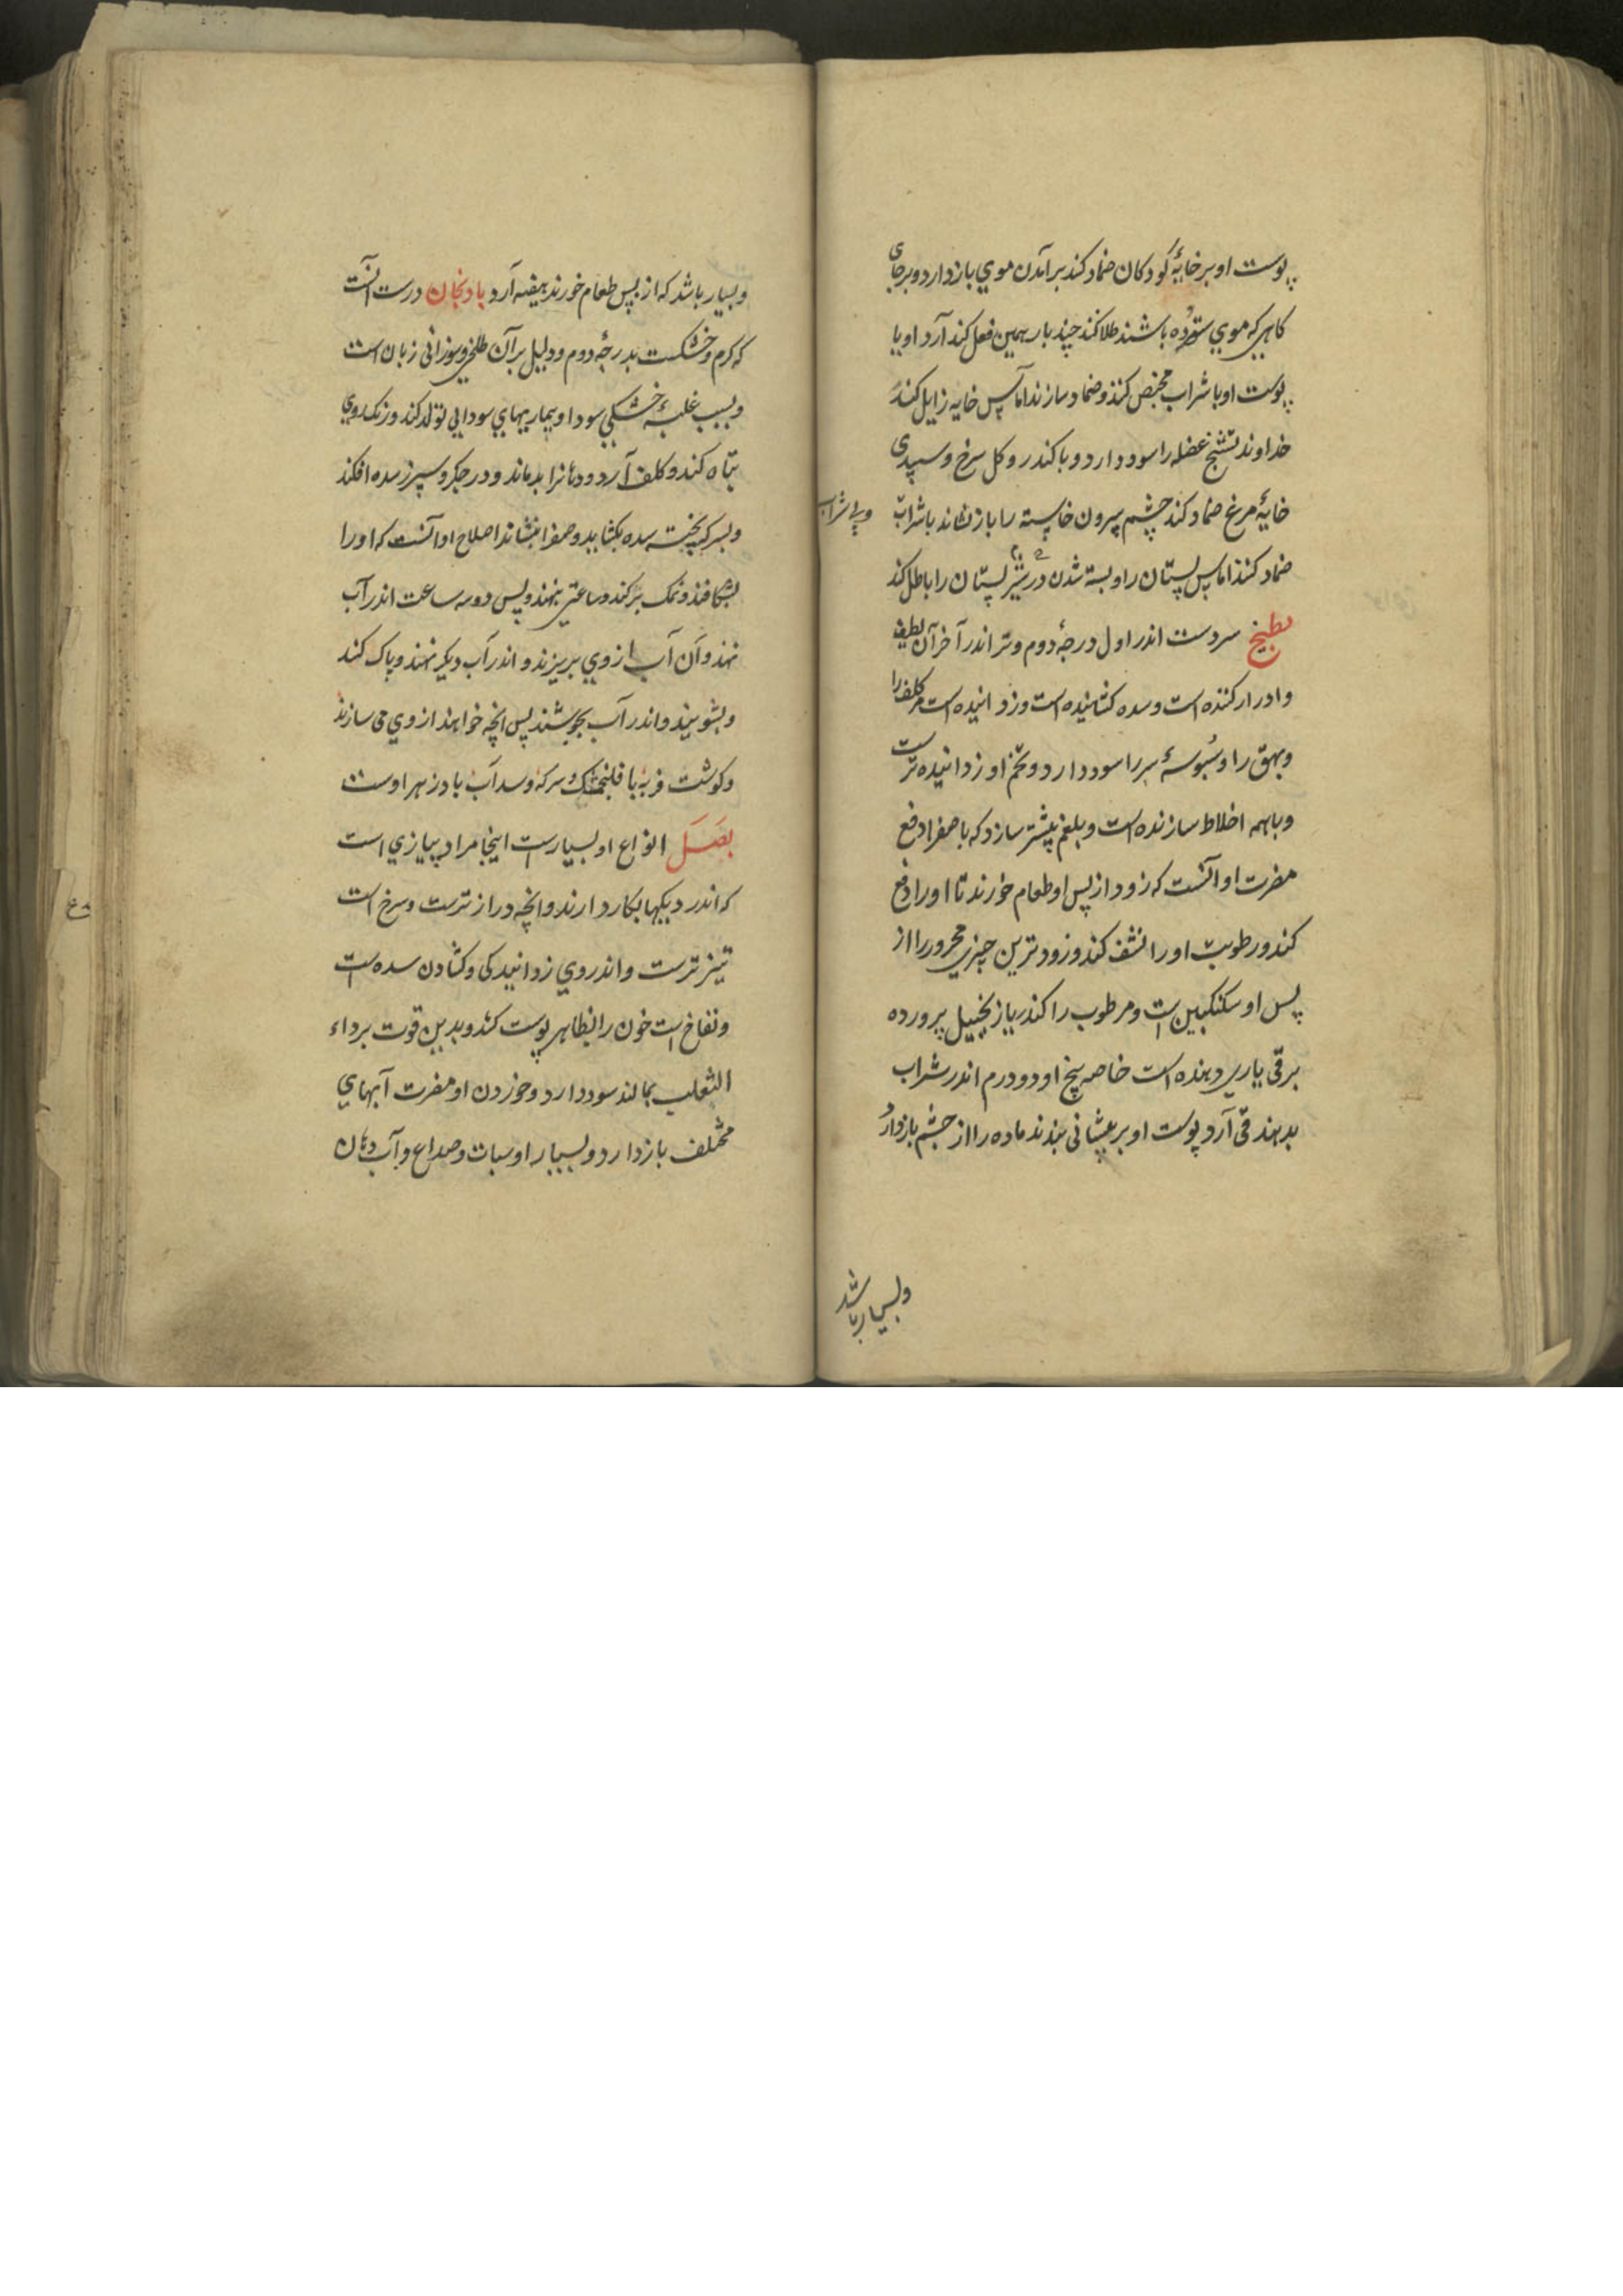 پوست او بر خایهٔ کودکان ضماد کند بر آمدن موی باز دارد و بر جای
کاهی که موی سترده باشند طلا کند چند بار همین فعل کند آرد او یا
پوست او با شراب کنند و ضماد سازند آماس خایه زایل کند
خداوند تشنج عضله را سود دارد و با کندر و کل سرخ و سپیدی
خایهٔ مرغ ضماد کند چشم بیرون خاسته را باز نشاند با شراب
و بی شراب
ضماد کنند اماس پستان را و بسته شدن شیر در پستان را باطل کند
بطیخ سردست اندر اول درجهٔ دوم و تر اندر آخر آن لطیف
و ادرار کننده است و سده کشاینده است و زداینده است مر کلف را
و بهق را و سبوسهٔ سر را سود دارد و تخم او زداینده ترست
و با همه اخلاط سازنده است و بلغم بیشتر سازد که با صفرا دفع
مضرت او آنست که زود از پس او طعام خورند تا او را دفع
کند و رطوبت او را نشف کند و زودترین چیزی محرور را از
پس او سکنکبین است و مرطوب را کندر یا زنجبیل پرورده
بر قی یاری دهنده است خاصه بیخ او دو درم اندر شراب
بدهند قی آرد پوست او بر پیشانی بندند ماده را از چشم باز دارد
و بسیار باشد
و بسیار باشد که از پس طعام خورند هیضه آرد بادنجان درست آنست
که کرم و خشکست بدرجهٔ دوم و دلیل بر آن طلخی و سوزانی زبان است
و بسبب غلبهٔ خشکی سودا و بیماریهای سودایی تولد کند و رنک روی
تباه کند و کلف آرد و دهان را بدماند و در جکر و سپرز سده افکند
و بسرکه پخته سده بکشاید و صفرا بنشاند اصلاح او آنست که او را
بشکافند و نمک بر کند و ساعتی بنهند و پس دو سه ساعت اندر آب
نهند و آن آب از وی بریزند و اندر آب دیکر نهند و پاک کند
و بشویند و اندر آب بجوشند پس انچه خواهند از وی می سازند
و کوشت فربه با و سرکه و سداب بادزهر اوست
بصل انواع او بسیارست اینجا مراد پیازی است
که اندر دیکها بکار دارند و انچه درازترست و سرخ است
تیزترست و اندر وی زدانیدکی و کشادن سده است
و نفاخ است خون را بظاهر پوست کشد و بدین قوت بر داء
الثعلب بمالند سود دارد و خوردن او مضرت آبهای
مختلف باز دارد و بسیار او سبات و صداع و آب دهان